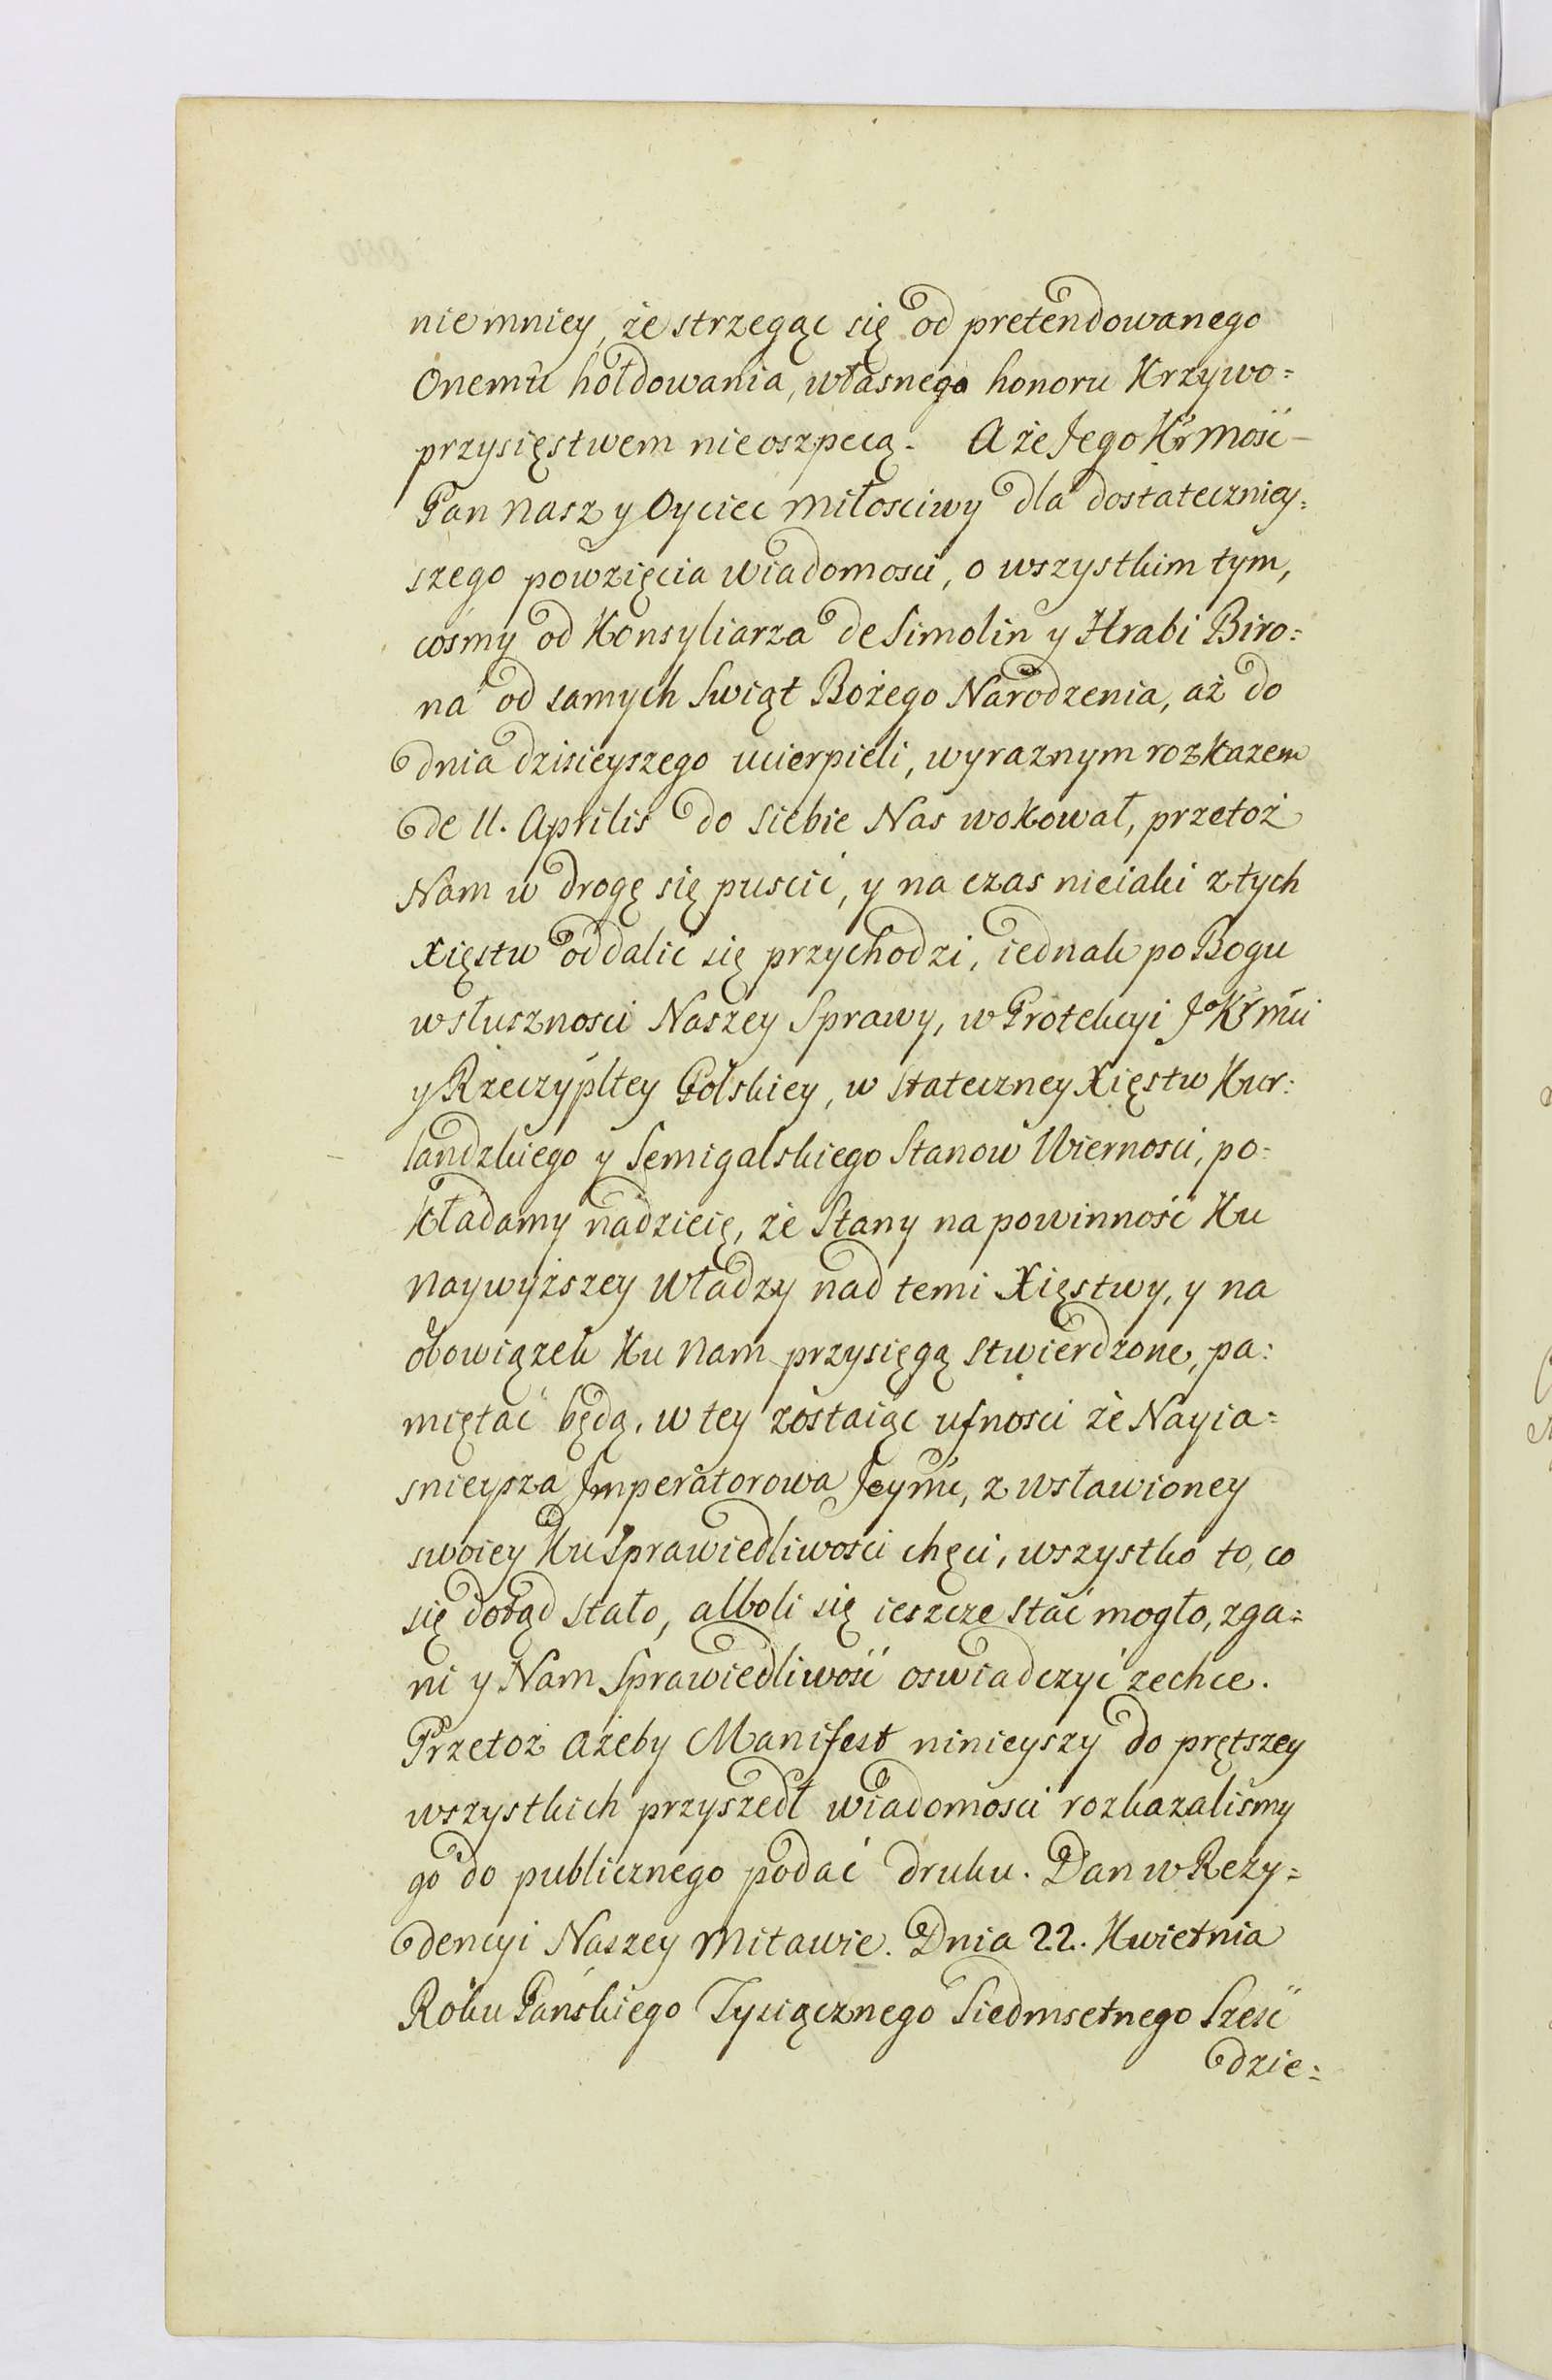 niemniey, że strzegąc się od pretendowanego
Onemu hołdowania, własnego honoru Krzywo=
przysięstwem nieoszpecą. A że Jego Kr̃ Mość
Pan Nasz y Oyciec Miłosciwy dla dostateczniey=
szego powzięcia wiadomosci, o wszystkim tym,
cośmy od Konsyliarza de Simolin y Hrabi Biro=
na od samych Swiąt Bożego Narodzenia, aż do
dnia dzisieyszego ucierpieli, wyraznym rozkazem
de 11. Aprilis do siebie Nas wokował, przetoż
Nam w drogę się puscić, y na czas nieiaki z tych
Xięstw oddalić się przychodzi, iednak po Bogu
w słusznosci Naszey Sprawy, w Protekcyi Jo Kr̃ Mci
y Rzeczypltey Polskiey, w stateczney Xięstw Kur=
landzkiego y Semigalskiego Stanow Wiernosci, po=
kładamy nadzieię, że Stany na powinność Ku
Naywyższey Władzy nad temi Xięstwy, y na
obowiązek Ku Nam przysięgą stwierdzone, pa=
miętać będą, w tey zostaiąc ufnosci że Nayia=
snieysza Imperatorowa Jeymć, z wsławioney
swoiey Ku Sprawiedliwości chęci, wszystko to, co
się dotąd stało, alboli się ieszcze stać mogło, zga=
ni y Nam Sprawiedliwość oswiadczyć zechce.
Przetoż ażeby Manifest ninieyszy do prętszey
wszystkich przyszedł wiadomosci rozkazalismy
go do publicznego podać druku. Dan w Rezy=
dencyi Naszey Mitawie. Dnia 22. Kwietnia
Roku Pańskiego Tysiącznego Siedmsetnego Sześć
dzie=